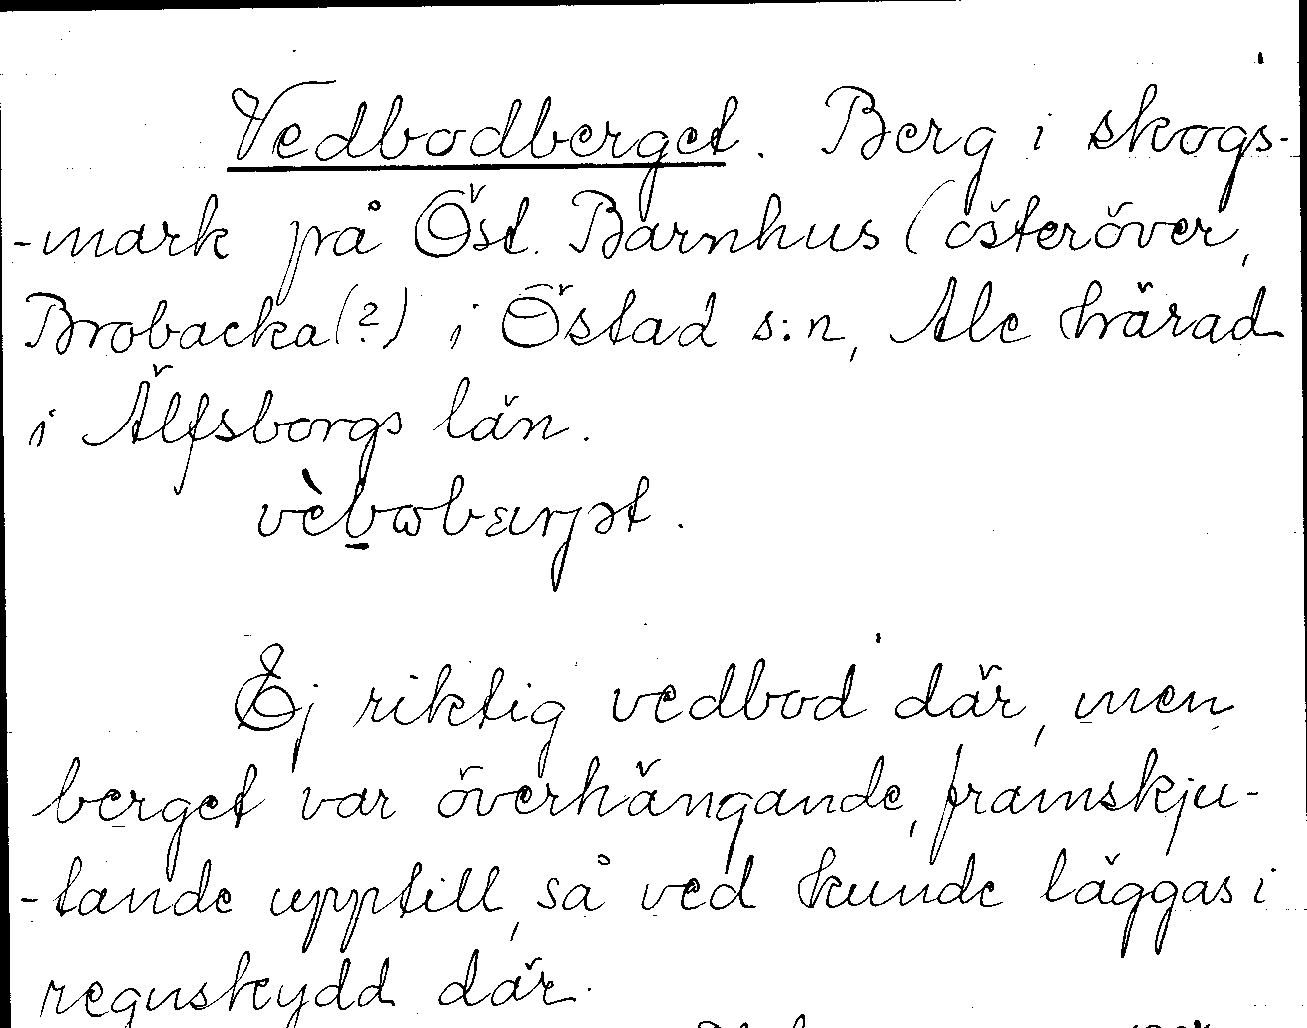 Vedbodberget. Berg i skogs-
-mark på Öst. Barnhus (österöver,
Brobacka(?) i Östad s:n, Ale härad
i Älfsborgs län.
vèb̲ωbærjət.
Ej riktig vedbod där, men
berget var överhängande, framskju-
-tande upptill, så ved kunde läggas i
regnskydd där.